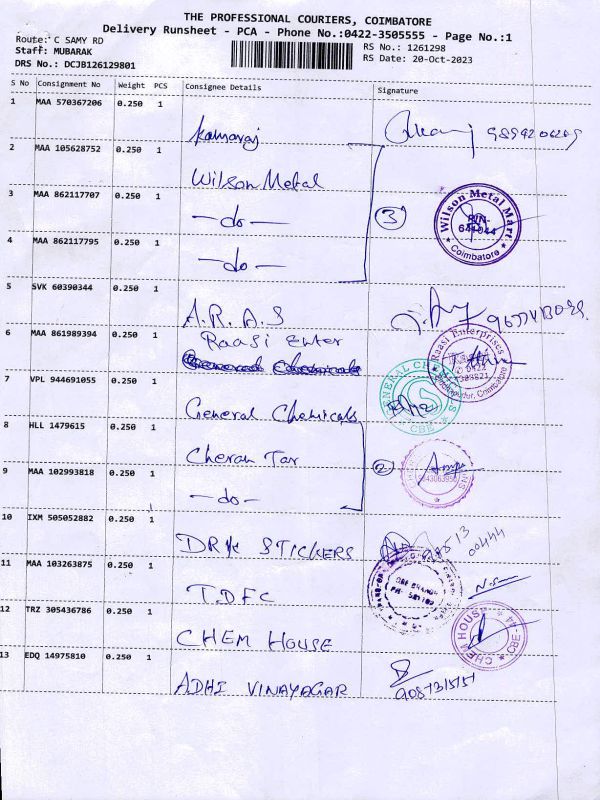 THE PROFESSIONAL COURIERS, COIMBATORE
Delivery Runsheet - PCA - Phone No.:0422-3505555 - Page No.:1
Route: C SAMY RD
RS No.: 1261298
Staff: MUBARAK
RS Date: 20-Oct-2023
DRS No.: DCJB126129801
S No Consignment No Weight PCS Consignee Details Signature
1 MAA 570367206 0.250 1
Kamaraj
2 MAA 105628752 0.250 1
Wilson Metal
3 MAA 862117707 0.250 1
-do-
3
Wilson Metal Mart
PIN-
641044
Coimbatore
4 MAA 862117795 0.250 1
-do-
5 SVK 60390344 0.250 1
A.R.A.S
6 MAA 861989394 0.250 1
Raasi Enter
General Chemicals
Raasi Enterprises
Coimbatore
7 VPL 944691055 0.250 1
General Chemicals
GENERAL CHEMICALS
CBE
8 HLL 1479615 0.250 1
Cheran Tar
9 MAA 102993818 0.250 1
-do-
2
10 IXM 505052882 0.250 1
DRK STICKERS
98513
00444
11 MAA 103263875 0.250 1
T.D.F.C
12 TRZ 305436786 0.250 1
CHEM HOUSE
CHEM HOUSE
CBE
13 EDQ 14975810 0.250 1
ADHI VINAYAGAR